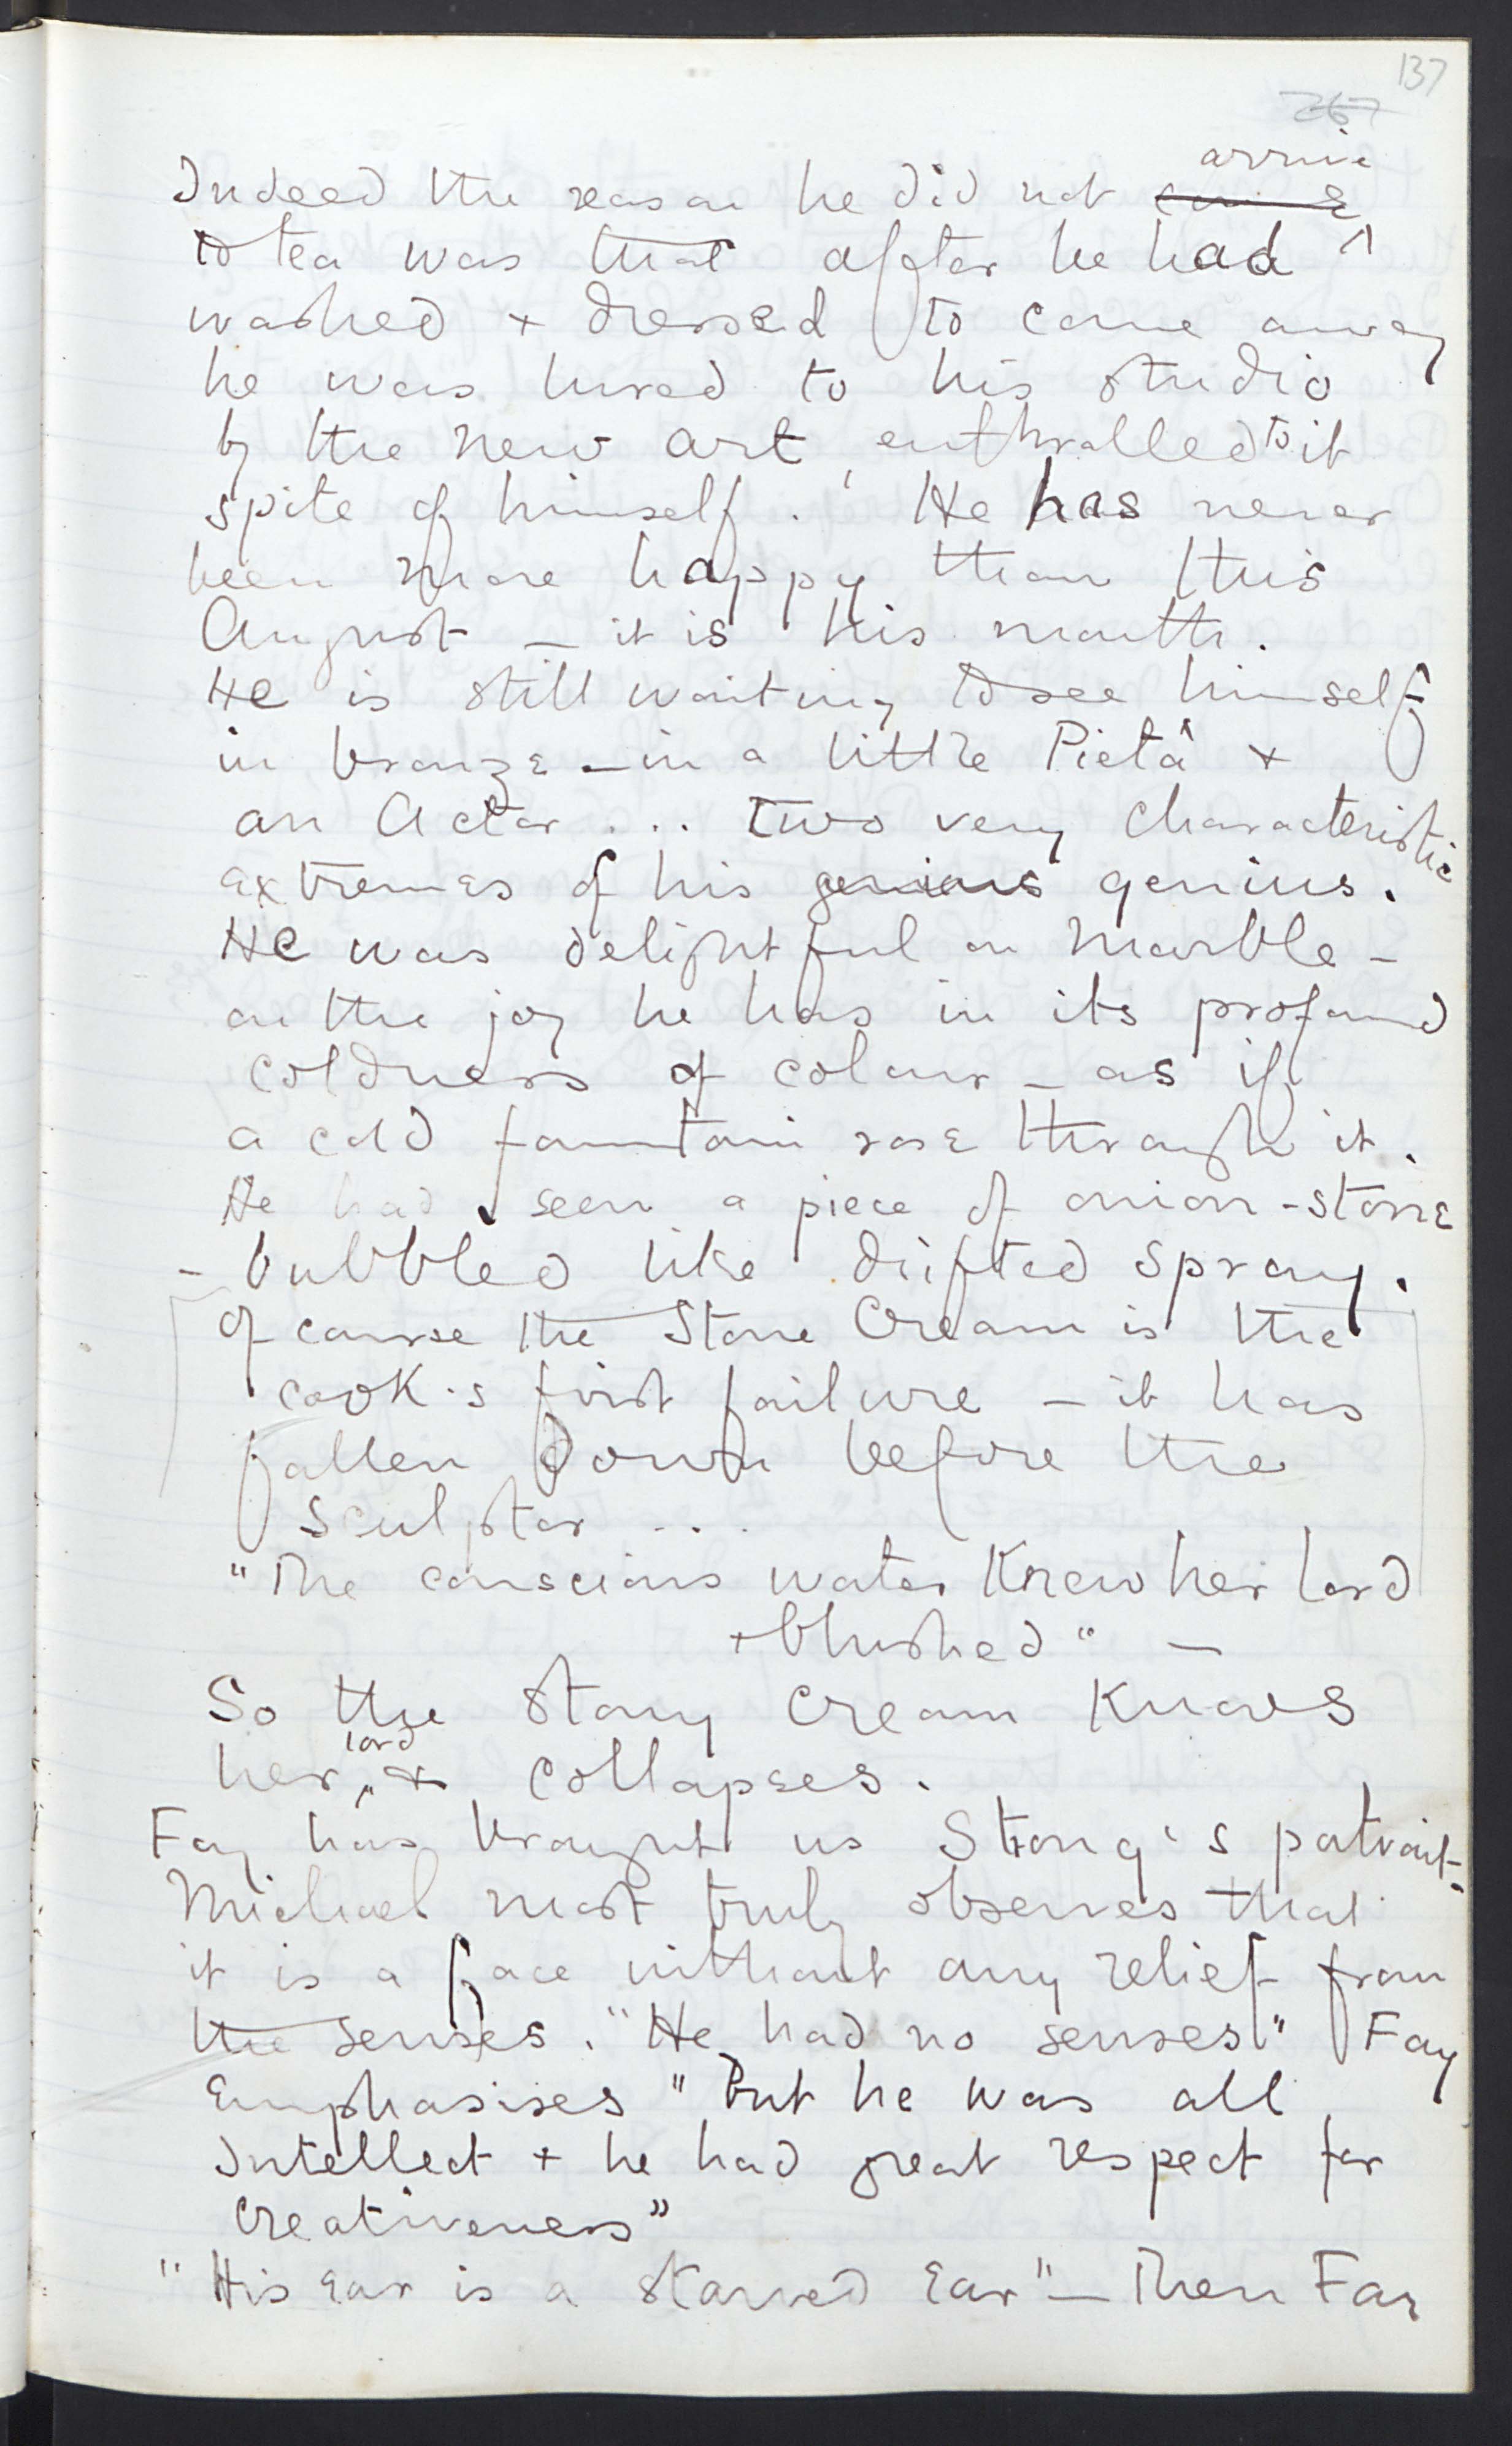 137
267
arrive
Indeed the reason he did not come
to tea was that after he had ^
washed + dressed to come away
he was lured to his studio
by the new art, enthralled to it
spite of himself. He has never
been more happy than this
August – it is his month.
He is still waiting to see himself
in bronze – in a little Pietà +
an Actor ... two very characteristic
extremes of his genious genius.
He was delightful on marble –
on the joy he has in its profound
coldness of colour – as if
a cold fountain rose through it.
He had seen a piece of onion-stone
– bubbled like drifted spray.
Of course the Stone Cream is the
cook's first failure – it has
fallen down before the
Sculptor ...
"The conscious water knew her lord
+ blushed" –
So the stony cream knows
her lord, + collapses.
Fay has brought us Strong's patrait–
Michael most truly observes that
it is a face without any relief from
the senses. "He had no senses" Fay
Emphasises "but he was all
Intellect + he had great respect for
Creativeness"
"His Ear is a starved Ear" – Then Fay